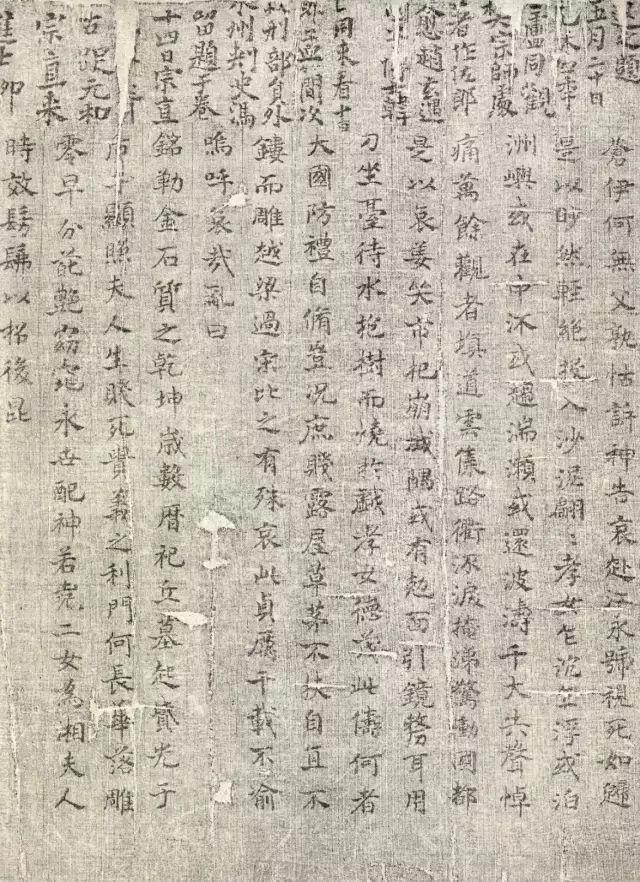 五月二十日
盧同觀
樊宗師處
著作佐郎
愈趙玄遇
韓
同來看
間次
刑部員外
州刺史馮
留題于卷
十四日宗直
元和
宗直來
蒼伊何無父孰怙訴神告哀赴江永號視死如歸
是以眇然輕絕投入沙泥翩〻孝女乍沉乍浮或泊
洲嶼或在中流或趨湍瀨或還波濤千夫失聲悼
痛萬餘觀者填道雲集路衢流淚掩涕驚動國都
是以哀姜哭市杞崩城隅或有剋面引鏡剺耳用
刀坐臺待水抱樹而燒於戲孝女德茂此儔何者
大國防禮自脩豈況庶賤露屋草茅不扶自直不
鏤而雕越梁過宋比之有殊哀此貞厲千載不渝
嗚呼哀哉亂曰
銘勒金石質之乾坤歲數曆祀丘墓起墳光于
后土顯照夫人生賤死貴義之利門何長華落雕
零早分葩艷窈窕永世配神若堯二女為湘夫人
時效髣髴以招後昆